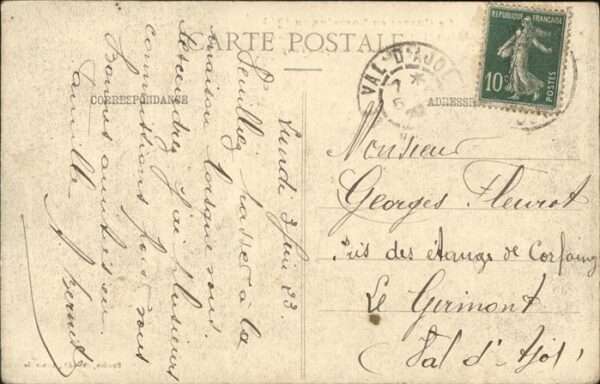 CARTE POSTALE
CORRESPONDANCE
ADRESSE
REPUBLIQUE FRANÇAISE
10c
POSTES
VAL-D'AJOL
Lundi 2 Juin 23
Veuillez passer à la
maison lorsque vous
descendrez j'ai plusieurs
commissions pour vous
Bonnes amitiés en
famille
Monsieur
Georges Fleurot
Près des étangs de Corfaing
Le Girmont
Val d'Ajol